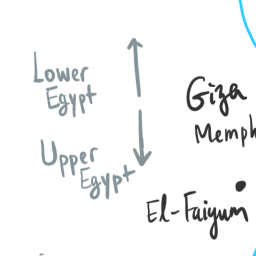 Lower
Egypt
Upper
Egypt
Giza
El-Faiyum